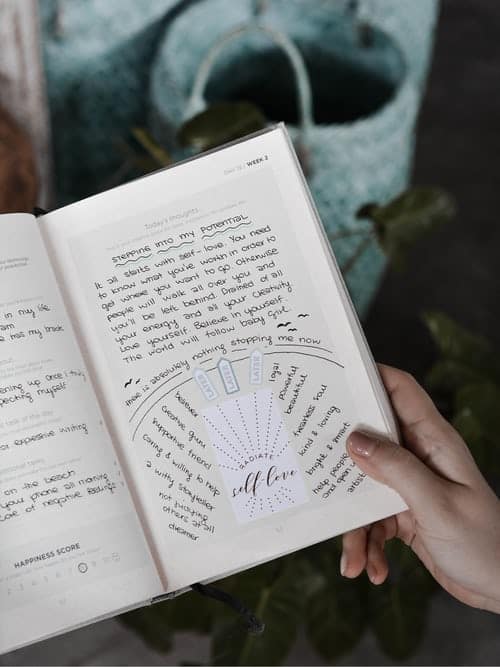 in my life
am
e has my back
ening up once i tru
pecting myself
task of the day
or expressive writing
on the beach
your phone all morning
lots of negative feelings
HAPPINESS SCORE
WEEK 2
Today's thoughts...
STEPPING INTO MY POTENTIAL
It all starts with self-love. You need
to know what you're worth in order to
get where you want to go. Otherwise
people will walk all over you and
you'll be left behind. Drained of all
your energy and all your creativity.
Love yourself. Believe in yourself.
The world will follow baby girl.
there is absolutely nothing stopping me now
LATER
LATER
LATER
believer
creative guru
supportive friend
caring & willing to help
a witty storyteller
not judging
others at all
dreamer
RADIATE
self love
loyal
powerful
beautiful
fearless soul
kind & loving
bright & smart
help people
and given
artist